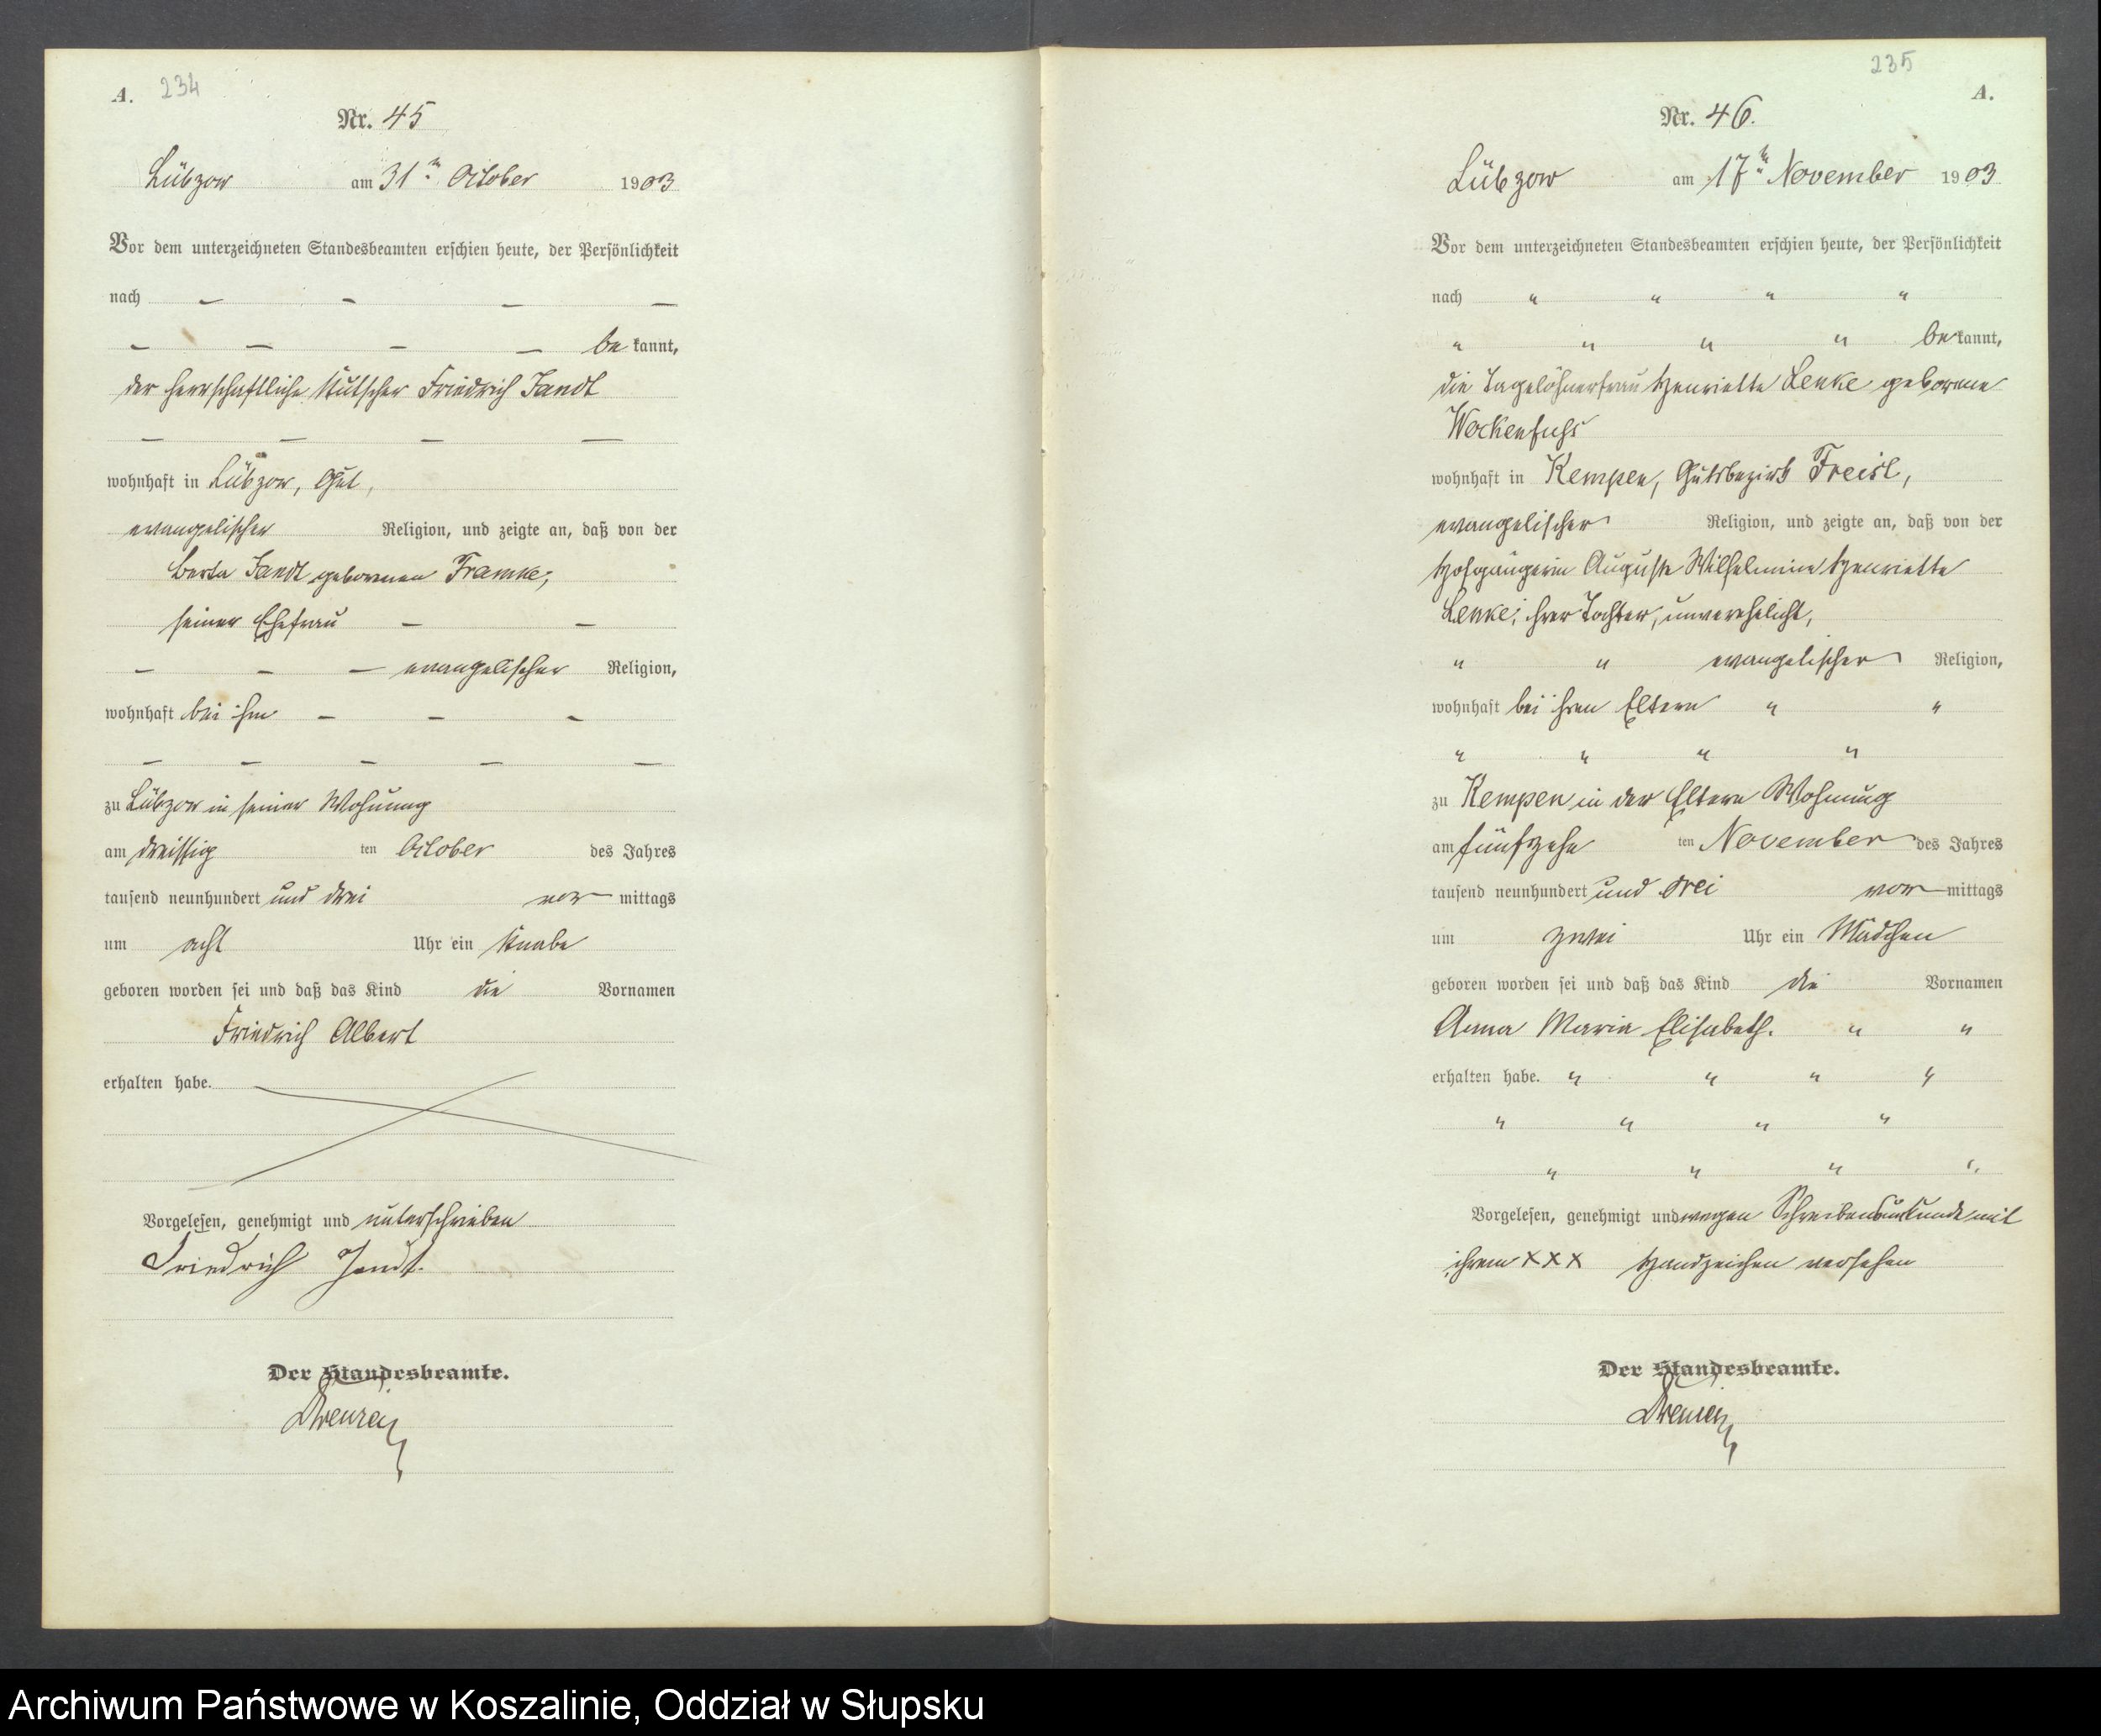 A. 234
Nr. 45
Lübzow am 31ten October 1903
Vor dem unterzeichneten Standesbeamten erschien heute, der Persönlichkeit
nach — — — —
— — — — bekannt,
der herrschaftliche Kutscher Friedrich Jandt
— — — —
wohnhaft in Lübzow, Gut,
evangelischer Religion, und zeigte an, daß von der
Berta Jandt gebornen Framke,
seiner Ehefrau — —
— — — evangelischer Religion,
wohnhaft bei ihm — — —
— — — — —
zu Lübzow in seiner Wohnung
am dreissigten October des Jahres
tausend neunhundert und drei vormittags
um acht Uhr ein Knabe
geboren worden sei und daß das Kind die Vornamen
Friedrich Albert
erhalten habe.
Vorgelesen, genehmigt und unterschrieben
Friedrich Jandt.
Der Standesbeamte.
235
A.
Nr. 46.
Lübzow am 17ten November 1903
Vor dem unterzeichneten Standesbeamten erschien heute, der Persönlichkeit
nach " " " "
" " " " bekannt,
die Tagelöhnerfrau Henriette Lenke geborene
Wockenfuhs
wohnhaft in Kempen, Gutsbezirk Freist,
evangelischer Religion, und zeigte an, daß von der
Hofgängerin Auguste Wilhelmine Henriette
Lenke, ihrer Tochter, unverehelicht,
" " evangelischer Religion,
wohnhaft bei ihren Eltern " "
" " " "
zu Kempen in der Eltern Wohnung
am fünfzehnten November des Jahres
tausend neunhundert und drei vormittags
um zwei Uhr ein Mädchen
geboren worden sei und daß das Kind die Vornamen
Anna Maria Elisabeth. " "
erhalten habe. " " " "
" " " "
" " " "
Vorgelesen, genehmigt und wegen Schreibensunkunde mit
ihrem XXX Handzeichen versehen
Der Standesbeamte.
Archiwum Państwowe w Koszalinie, Oddział w Słupsku